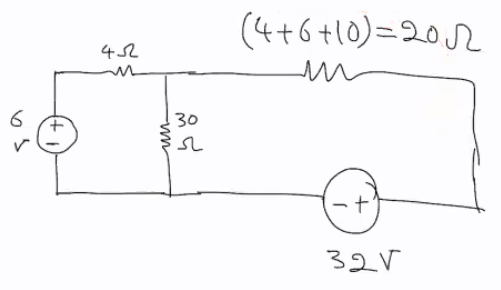 (4+6+10)=20Ω
4Ω
6
V
+
−
30
Ω
−+
32V